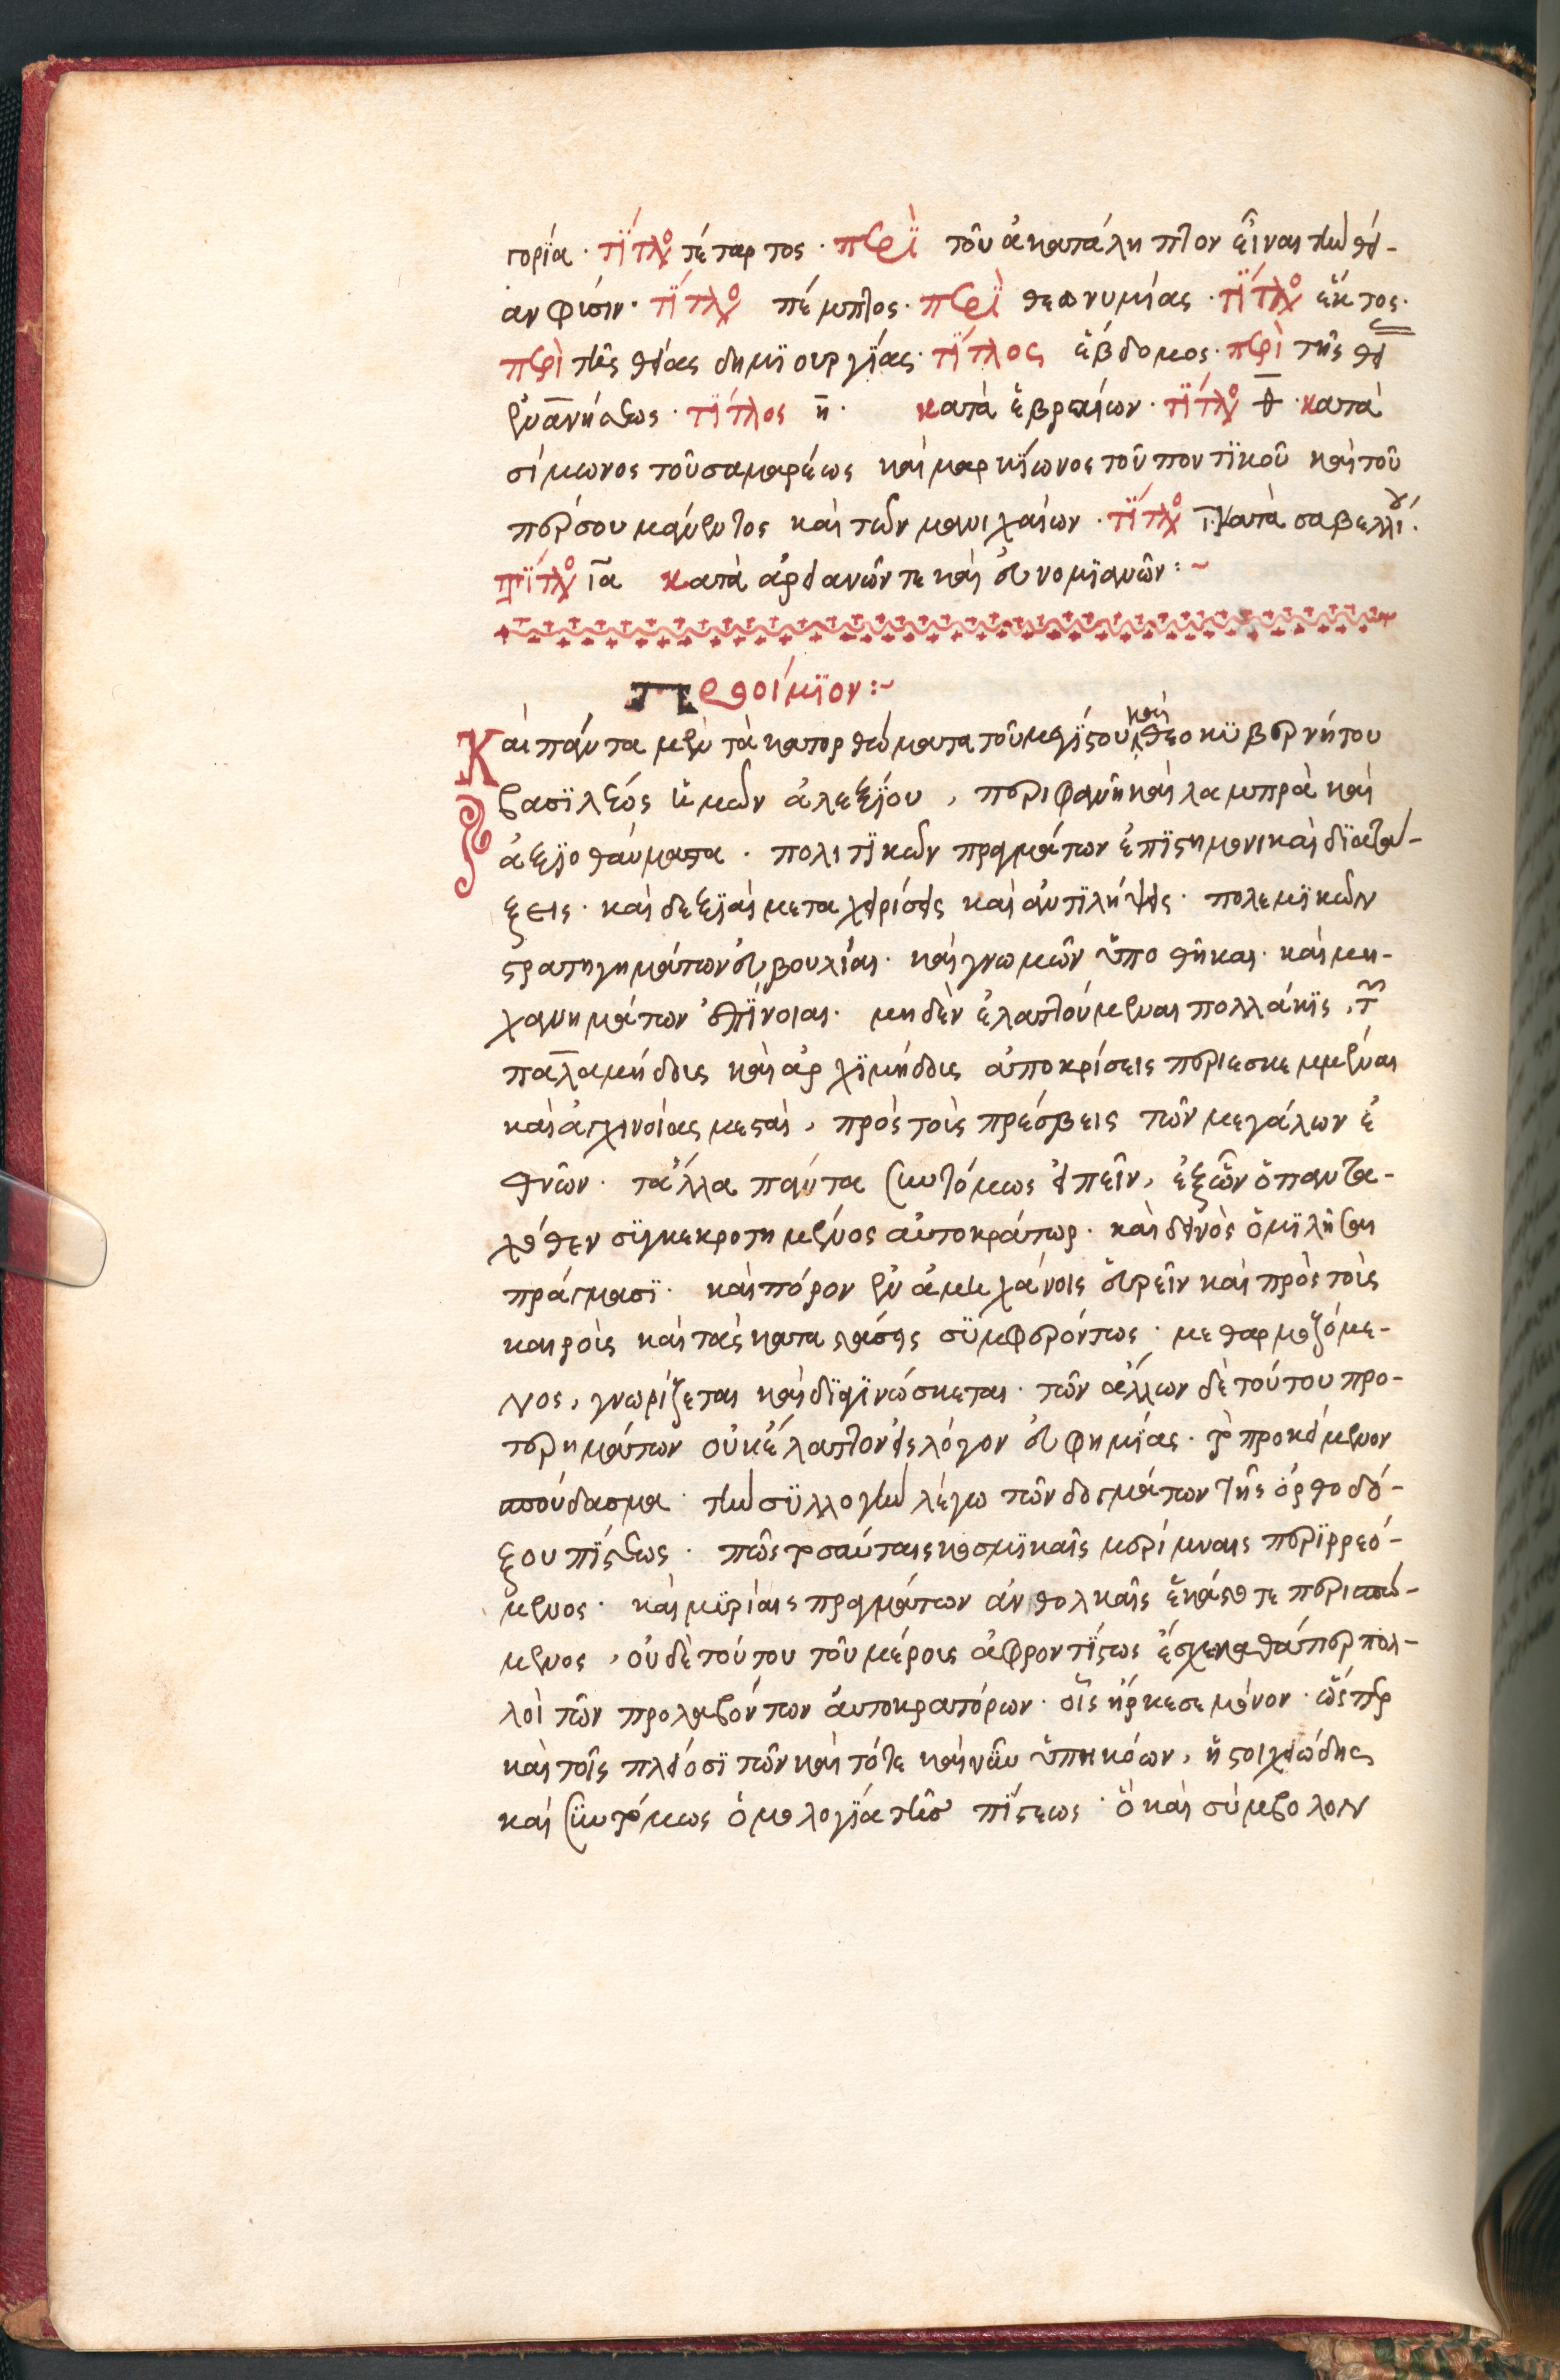 γορΐα · τΐτλο τέταρτος · περὶ τοῦ ἀκατάληπτον εἶναι τὴν θεί-
αν φύσιν · τΐτλο πέμπτος · περὶ θεωνυμίας · τΐτλο ἕκτος ·
περὶ τῆς θείας δημϊουργΐας · τΐτλος ἕβδομος · περὶ τῆς θεί
ἐνανῆσεως · τΐτλος η · κατὰ ἑβραίων · τΐτλο θ · κατὰ
σίμωνος τοῦ σαμαρέως καὶ μαρκΐωνος τοῦ ποντϊκοῦ καὶ τοῦ
πέρσου μάνεντος καὶ τῶν μανιχαίων · τΐτλο ι · κατὰ σαβελλί
τΐτλο ια κατὰ ἀρειανῶν τε καὶ εὐνομϊανῶν :~
Προοίμϊον :~
Καὶ πάντα μὲν τὰ κατορθώματα τοῦ μεγΐστου καὶ θεοκϋβερνήτου
βασϊλέως ἡμῶν ἀλεξΐου, περιφανῆ καὶ λαμπρὰ καὶ
ἀξϊοθαύματα · πολιτϊκῶν πραγμάτων ἐπϊστημονικαὶ δϊατά-
ξεις · καὶ δεξϊαὶ μεταχειρίσεις καὶ ἀντϊλήψεις · πολεμϊκῶν
στρατηγημάτων εὐβουλίαι · καὶ γνωμῶν ὑποθῆκαι · καὶ μη-
χανημάτων ἐπΐνοιαι · μηδὲν ἐλαττούμεναι πολλάκϊς, τῶν
παλαμήδους καὶ ἀρχϊμήδους ἀποκρίσεις περιεσκεμμέναι
καὶ ἀγχινοίας μεσταὶ, πρὸς τοὺς πρέσβεις τῶν μεγάλων ἐ
θνῶν · τἄλλα πάντα συντόμως εἰπεῖν, ἐξ ὧν ὁ πανταχό-
χόθεν σϋγκεκροτημένος αὐτοκράτωρ · καὶ δεινὸς ὁμϊλῆσαι
πράγμασϊ · καὶ πόρον ἐν ἀμηχάνοις εὑρεῖν καὶ πρὸς τοὺς
καιροὺς καὶ τὰς καταστάσεις σϋμφερόντως · μεθαρμοζόμε-
νος, γνωρίζεται καὶ δϊαγϊνώσκεται · τῶν ἄλλων δὲ τούτου προ-
τερημάτων οὐκ ἔλαττον εἰς λόγον εὐφημίας · τὸ προκείμενον
σπούδασμα · τὴν σϋλλογὴν λέγω τῶν δογμάτων τῆς ὀρθοδό-
ξου πΐστεως · πῶς τοσαύταις κοσμϊκαῖς μερίμναις περϊρρεό-
μενος · καὶ μϋρίαις πραγμάτων ἀνθολκαῖς ἑκάστοτε περισπώ-
μενος, οὐδὲ τούτου τοῦ μέρους ἀφροντΐστως ἔσχε καθάπερ πολ-
λοὶ τῶν προλαβόντων αὐτοκρατόρων · οἷς ἤρκεσε μόνον · ὥσπερ
καὶ τοῖς πλείοσϊ τῶν καὶ τότε καὶ νῦν ὑπηκόων, ἡ στοιχειώδης
καὶ σϋντόμως ὁμολογΐα τῆς πΐστεως · ὃ καὶ σύμβολον